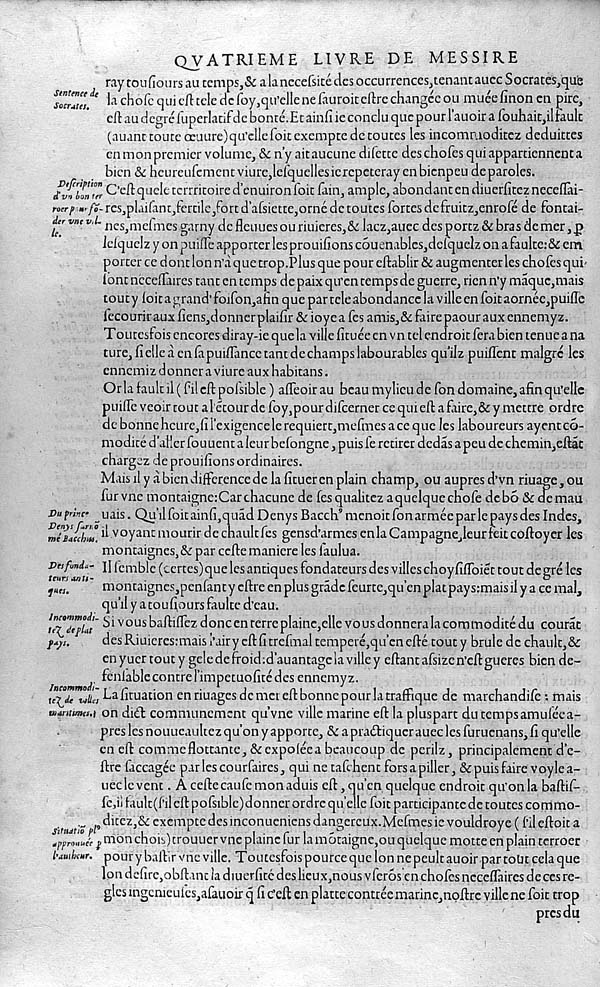 QVATRIEME LIVRE DE MESSIRE
ray touſiours au temps,& a la neceſsité des occurrences,tenant auec Socrates,que
Sentence de Socrates.
la choſe qui eſt tele de ſoy,qu'elle ne ſauroit eſtre changée ou muée ſinon en pire,
eſt au degré ſuperlatif de bonté.Et ainſi ie conclu que pour l'auoir a ſouhait,il fault
(auant toute œuure)qu'elle ſoit exempte de toutes les incommoditez deduittes
en mon premier volume, & n'y ait aucune diſette des choſes qui appartiennent a
bien & heureuſement viure,leſquelles ie repeteray en bien peu de paroles.
Deſcription d'vn bon terroer pour fōder vne ville.
C'eſt que le terrritoire d'enuiron ſoit ſain, ample, abondant en diuerſitez neceſſai-
res,plaiſant,fertile,fort d'aſsiete,orné de toutes ſortes de fruitz,enroſé de fontai-
nes,meſmes garny de fleuues ou riuieres, & lacz,auec des portz & bras de mer, ꝑ
leſquelz y on puiſſe apporter les prouiſions cōuenables,deſquelz on a faulte:& em
porter ce dont lon n'a que trop.Plus que pour eſtablir & augmenter les choſes qui
ſont neceſſaires tant en temps de paix qu'en temps de guerre, rien n'y māque,mais
tout y ſoit a grand' foiſon,afin que par tele abondance la ville en ſoit aornée,puiſſe
ſecourir aux ſiens,donner plaiſir & ioye a ſes amis,& faire paour aux ennemyz.
Toutesfois encores diray-ie que la ville ſituée en vn tel endroit ſera bien tenue a na
ture, ſi elle à en ſa puiſſance tant de champs labourables qu'ilz puiſſent malgré les
ennemiz donner a viure aux habitans.
Or la fault il ( ſ'il eſt poſsible ) aſſeoir au beau mylieu de ſon domaine, afin qu'elle
puiſſe veoir tout a l'ētour de ſoy,pour diſcerner ce qui eſt a faire,& y mettre ordre
de bonne heure,ſi l'exigence le requiert,meſmes a ce que les laboureurs ayent cō-
modité d'aller ſouuent a leur beſongne, puis ſe retirer dedās a peu de chemin,eſtāt
chargez de prouiſions ordinaires.
Mais il y à bien difference de la ſituer en plain champ, ou aupres d'vn riuage, ou
ſur vne montaigne:Car chacune de ſes qualitez a quelque choſe de bō & de mau
Du prince Denys ſurnōmé Bacchus.
uais. Qu'il ſoit ainſi,quād Denys Bacch⁹ menoit ſon armée par le pays des Indes,
il voyant mourir de chault ſes gensd'armes en la Campagne,leur feit coſtoyer les
montaignes,& par ceſte maniere les ſaulua.
Des fondateurs antiques.
Il ſemble (certes)que les antiques fondateurs des villes choyſiſſoiēt tout de gré les
montaignes,penſant y eſtre en plus grāde ſeurte,qu'en plat pays:mais il y a ce mal,
qu'il y a touſiours faulte d'eau.
Incommoditez de plat pays.
Si vous baſtiſſez donc en terre plaine,elle vous donnera la commodité du courāt
des Riuieres:mais l'air y eſt ſi treſmal temperé,qu'en eſté tout y brule de chault,&
en yuer tout y gele de froid:d'auantage la ville y eſtant aſsize n'eſt gueres bien de-
fenſable contre l'impetuoſité des ennemyz.
Incommoditez de villes maritimes.
La ſituation en riuages de mer eſt bonne pour la traffique de marchandiſe : mais
on dict communement qu'vne ville marine eſt la pluspart du temps amuſée a-
pres les nouueaultez qu'on y apporte, & a practiquer auec les ſuruenans, ſi qu'elle
en eſt comme flottante, & expoſée a beaucoup de perilz, principalement d'e-
ſtre ſaccagée par les courſaires, qui ne taſchent fors a piller, & puis faire voyle a-
uec le vent. A ceſte cauſe mon aduis eſt, qu'en quelque endroit qu'on la baſtiſ-
ſe,il fault(ſ'il eſt poſsible)donner ordre qu'elle ſoit participante de toutes commo-
ditez,& exempte des inconueniens dangereux.Meſmes ie vouldroye ( ſ'il eſtoit a
Situatiō plꝰ approuuée ꝑ l'autheur.
mon chois) trouuer vne plaine ſur la mōtaigne,ou quelque motte en plain terroer
pour y baſtir vne ville. Toutesfois pource que lon ne peult auoir par tout cela que
lon deſire,obſtant la diuerſité des lieux,nous vſerōs en choſes neceſſaires de ces re-
gles ingenieuſes,aſauoir q̃ ſi c'eſt en platte contrée marine,noſtre ville ne ſoit trop
pres du